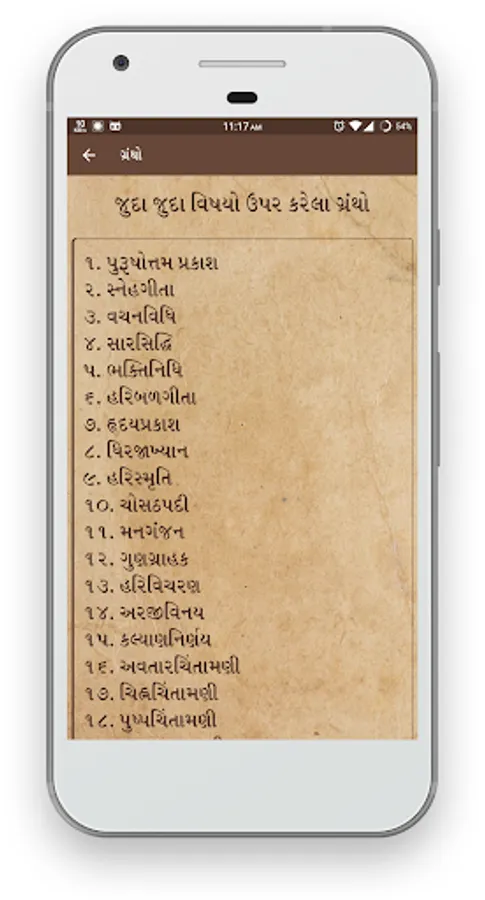 11:17 AM 64%
ગ્રંથો
જુદા જુદા વિષયો ઉપર કરેલા ગ્રંથો
૧. પુરૂષોત્તમ પ્રકાશ
૨. સ્નેહગીતા
૩. વચનવિધિ
૪. સારસિદ્ધિ
૫. ભક્તિનિધિ
૬. હરિબળગીતા
૭. હૃદયપ્રકાશ
૮. ધિરજાખ્યાન
૯. હરિસ્મૃતિ
૧૦. ચોસઠપદી
૧૧. મનગંજન
૧૨. ગુણગ્રાહક
૧૩. હરિવિચરણ
૧૪. અરજીવિનય
૧૫. કલ્યાણનિર્ણય
૧૬. અવતારચિંતામણી
૧૭. ચિહ્નચિંતામણી
૧૮. પુષ્પચિંતામણી